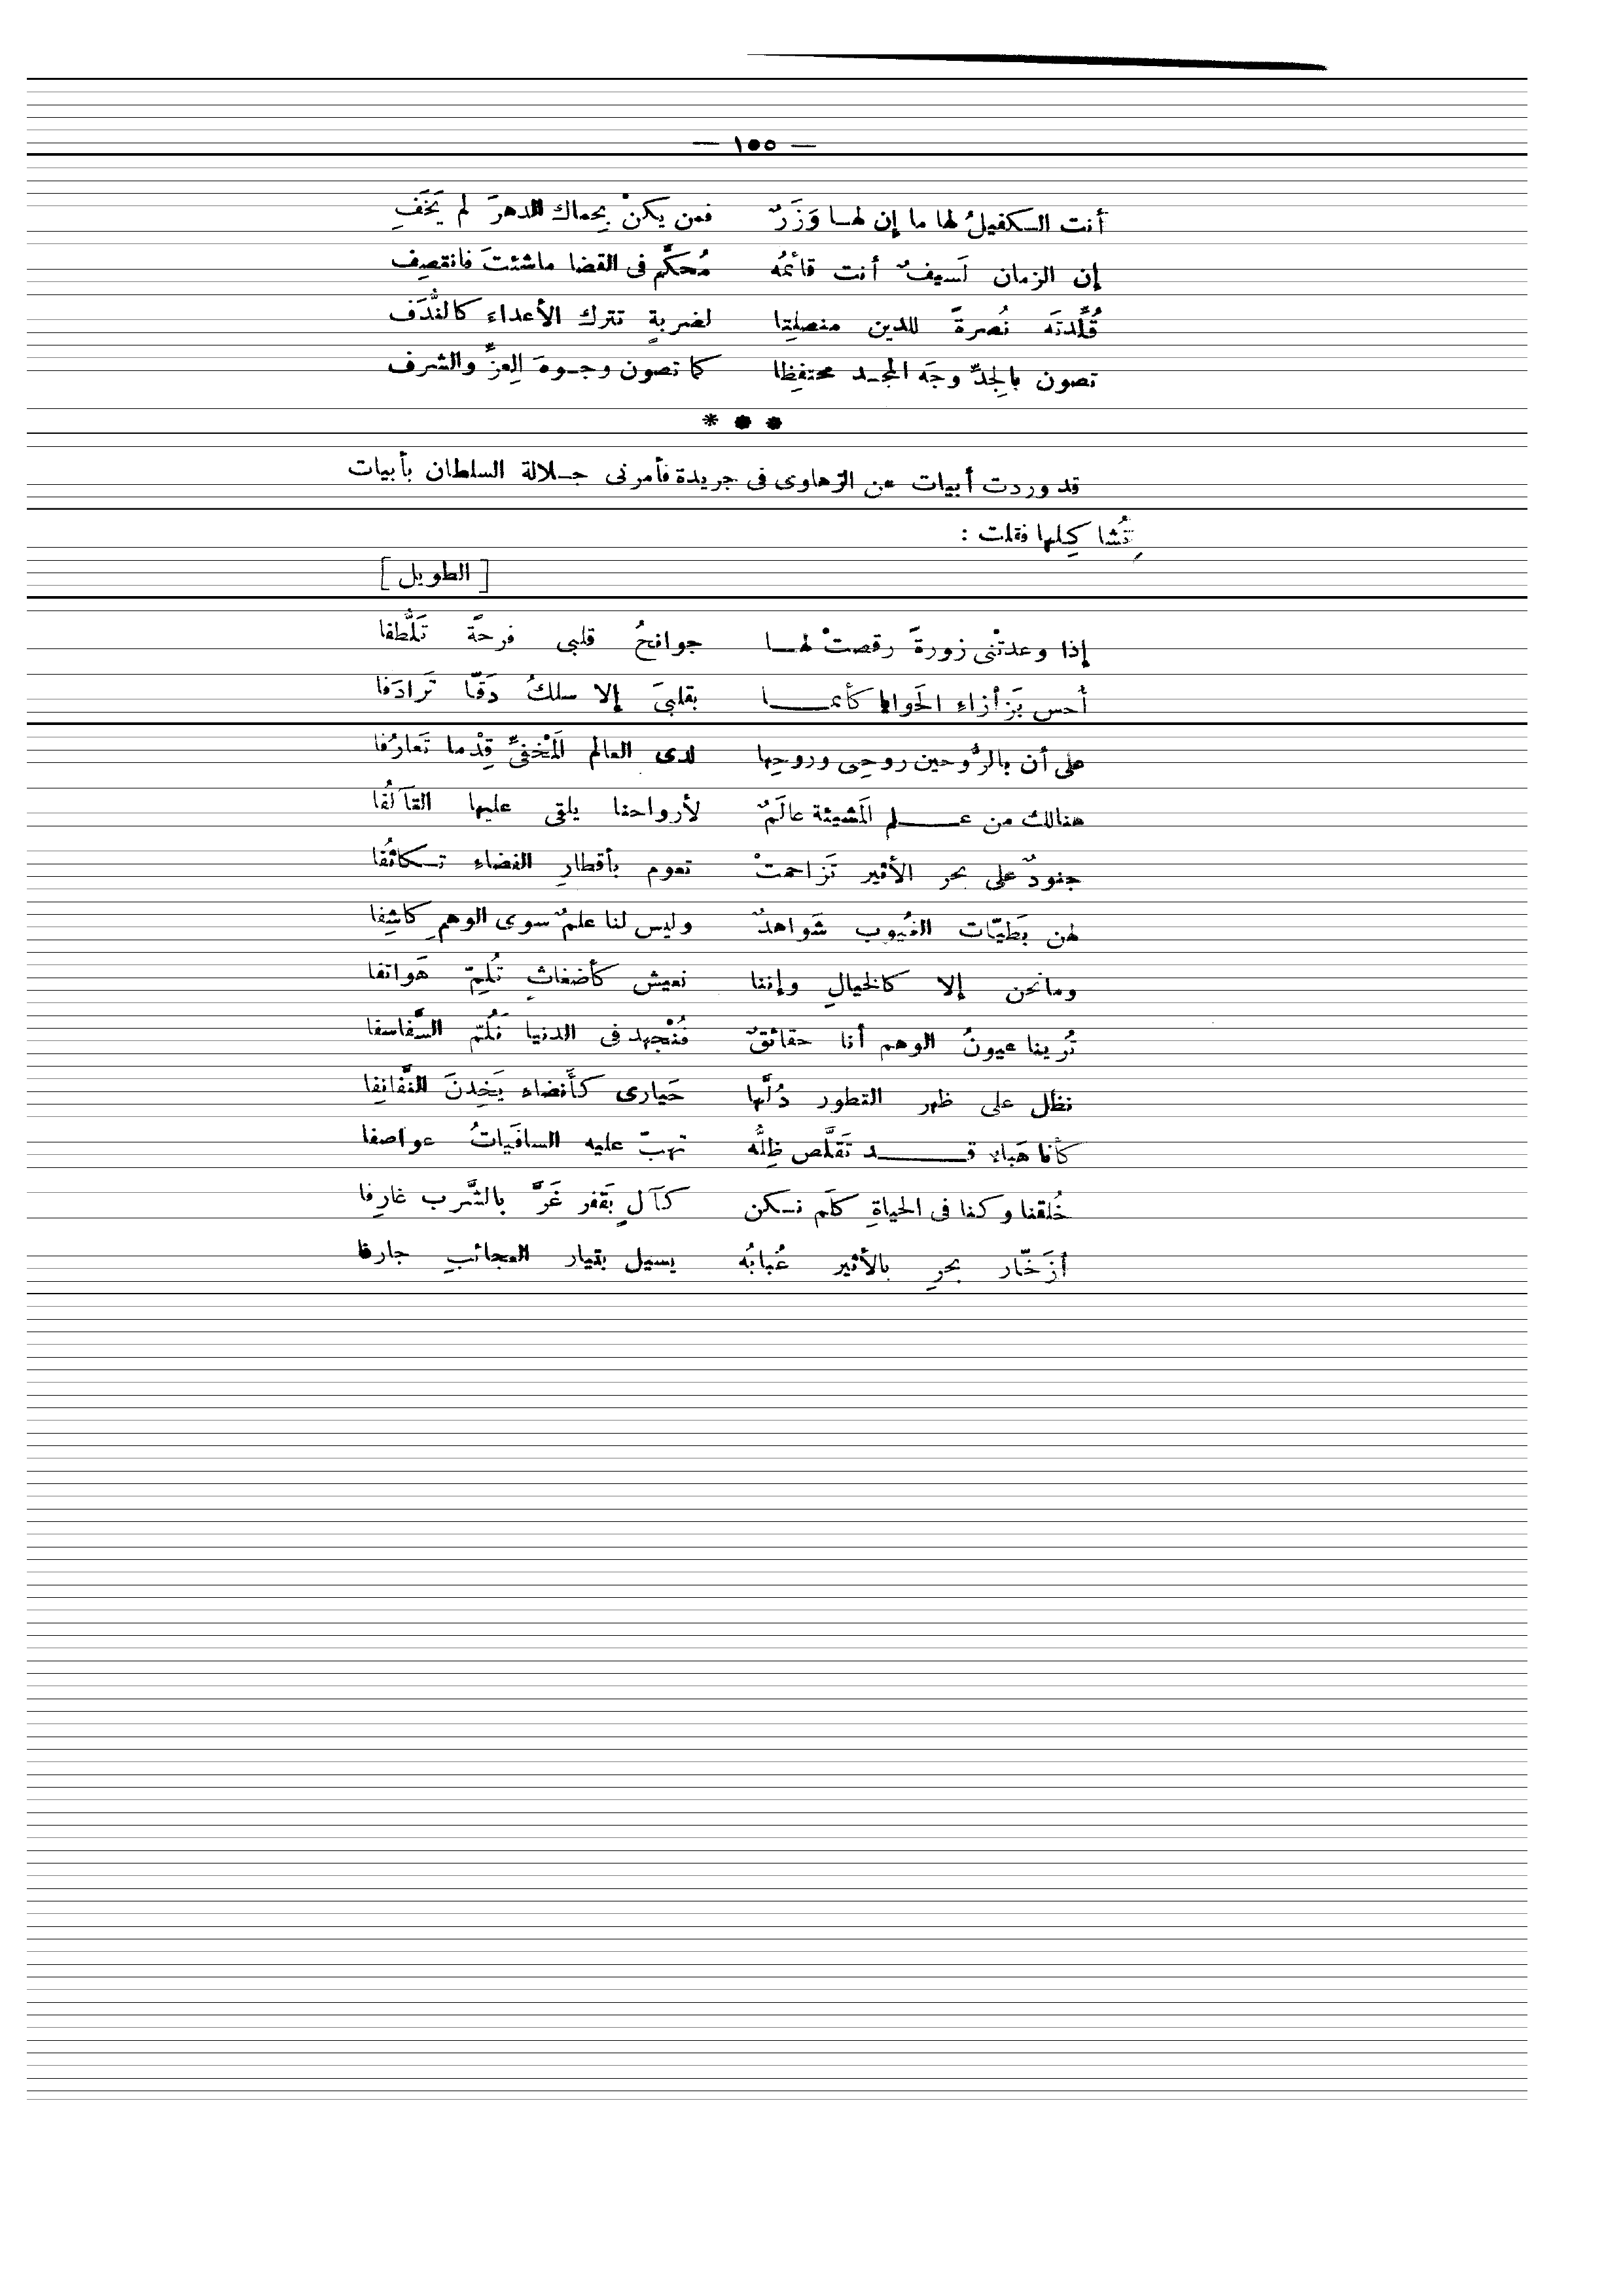 — ١٥٥ —
أنت الكفيلُ لها ما إن لها وَزَرٌ فمن يكنْ بِحماك الدهرَ لم يَخَفِ
إن الزمان لَسيفٌ أنت قائمُه مُحَكَّم فى القضا ماشئتَ فانتصِف
قُلِّدتَه نُصرةً للدين منصلِتا لضربةٍ تترك الأعداء كالنُّدَف
تصون بالجِدِّ وجهَ المجد محتفِظا كما تصون وجوهَ العِزِّ والشرف
* * *
قد وردت أبيات عن الزهاوى فى جريدة فأمرنى جلالة السلطان بأبيات
تُشاكِلها فقلت :
[ الطويل ]
إذا وعدتْنى زورةً رقصتْ لها جوانحُ قلبى فرحةً تَلَطُّفا
أحس بَزأزاءِ الحَوا كأنما بقلبىَ إلا سلكُ دَقًّا تَرادَفا
على أن بالرُّوحين روحِى وروحِها لدى العالم المَخْفىِّ قِدْما تَعارُفا
هنالك من علم المَشيئة عالَمٌ لأرواحنا يلقى عليها التآلُفا
جنودٌ على بحر الأثير تَزاحمتْ تعوم بأقطارِ الفضاء تكاثُفا
لهن بَطيّات الغُيوب شَواهدٌ وليس لنا علمٌ سوى الوهمِ كاشِفا
ومانحن إلا كالخيالِ وإننا نعيش كأضغاثٍ تُلِمّ هَواتفا
تُرينا عيونُ الوهم أنا حقائقٌ فنُجهد فى الدنيا نَلُمّ السَّفاسفا
نظل على ظهر التطور دُلَّها حَيارى كأَنضاء يَخِدنَ النَّفانِفا
كأنا هَباء قد تَقلَّص ظِلُّه تهبّ عليه السافَياتُ عواصفا
خُلقنا وكنا فى الحياةِ كلَم نكن كآلٍ بَقفر غَرَّ بالشَّرب غارِفا
أزَخّار بحرِ بالأثير عُبابُه يسيل بتيار العجائبِ جارفا